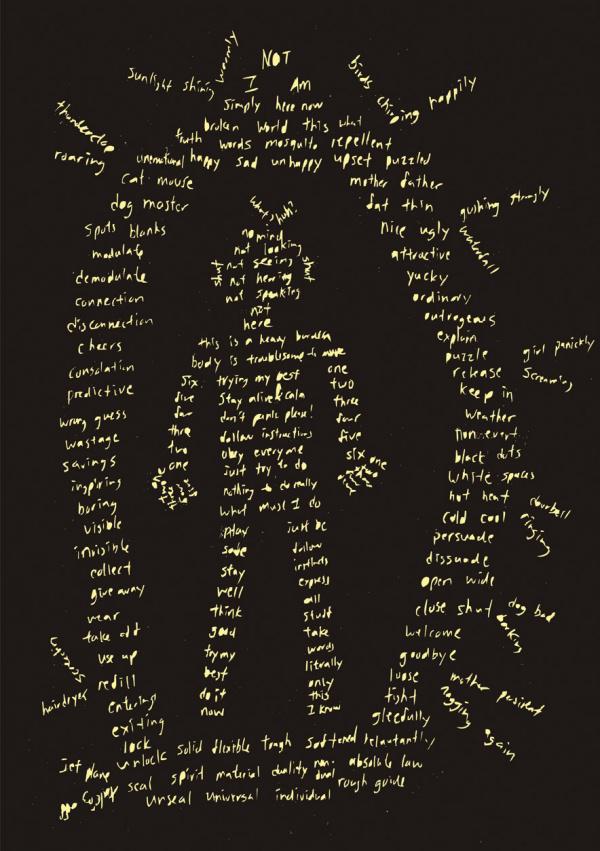 NOT
I Am
simply here now
broken world this what
truth words mosquito repellent
unemotional happy sad unhappy upset puzzled
sunlight shining warmly
birds chirping happily
thunderclap roaring
cat mouse
dog master
spots blanks
modulate
demodulate
connection
disconnection
cheers
consolation
predictive
wrong guess
wastage
savings
inspiring
boring
visible
invisible
collect
give away
wear
take off
use up
refill
entering
exiting
lock
unlock solid flexible tough softened reluctantly
jet plane
seal spirit material duality non-dual absolute law
unseal universal individual rough guide
hairdryer
mother father
fat thin
nice ugly
attractive
yucky
ordinary
outrageous
explain
puzzle
release
keep in
weather
non event
black dots
white spaces
hot heat
cold cool
persuade
dissuade
open wide
close shut
welcome
goodbye
loose
tight
gleefully
gushing strongly
waterfall
girl panickly
screaming
doorbell
ringing
dog bad
barking
mother
nagging
again
what's huh?
no mind
not looking
shut not seeing shut
not hearing
not speaking
not
here
this is a heavy burden
body is troublesome to move
trying my best
don't panic please!
follow instructions
obey everyone
just try to do
nothing to do really
what must I do
six
five
four
three
two
one
one
two
three
four
five
six
one
play
safe
stay
well
think
good
try my
best
do it
now
just be
follow
instincts
express
all
stuff
take
words
literally
only
this
I know